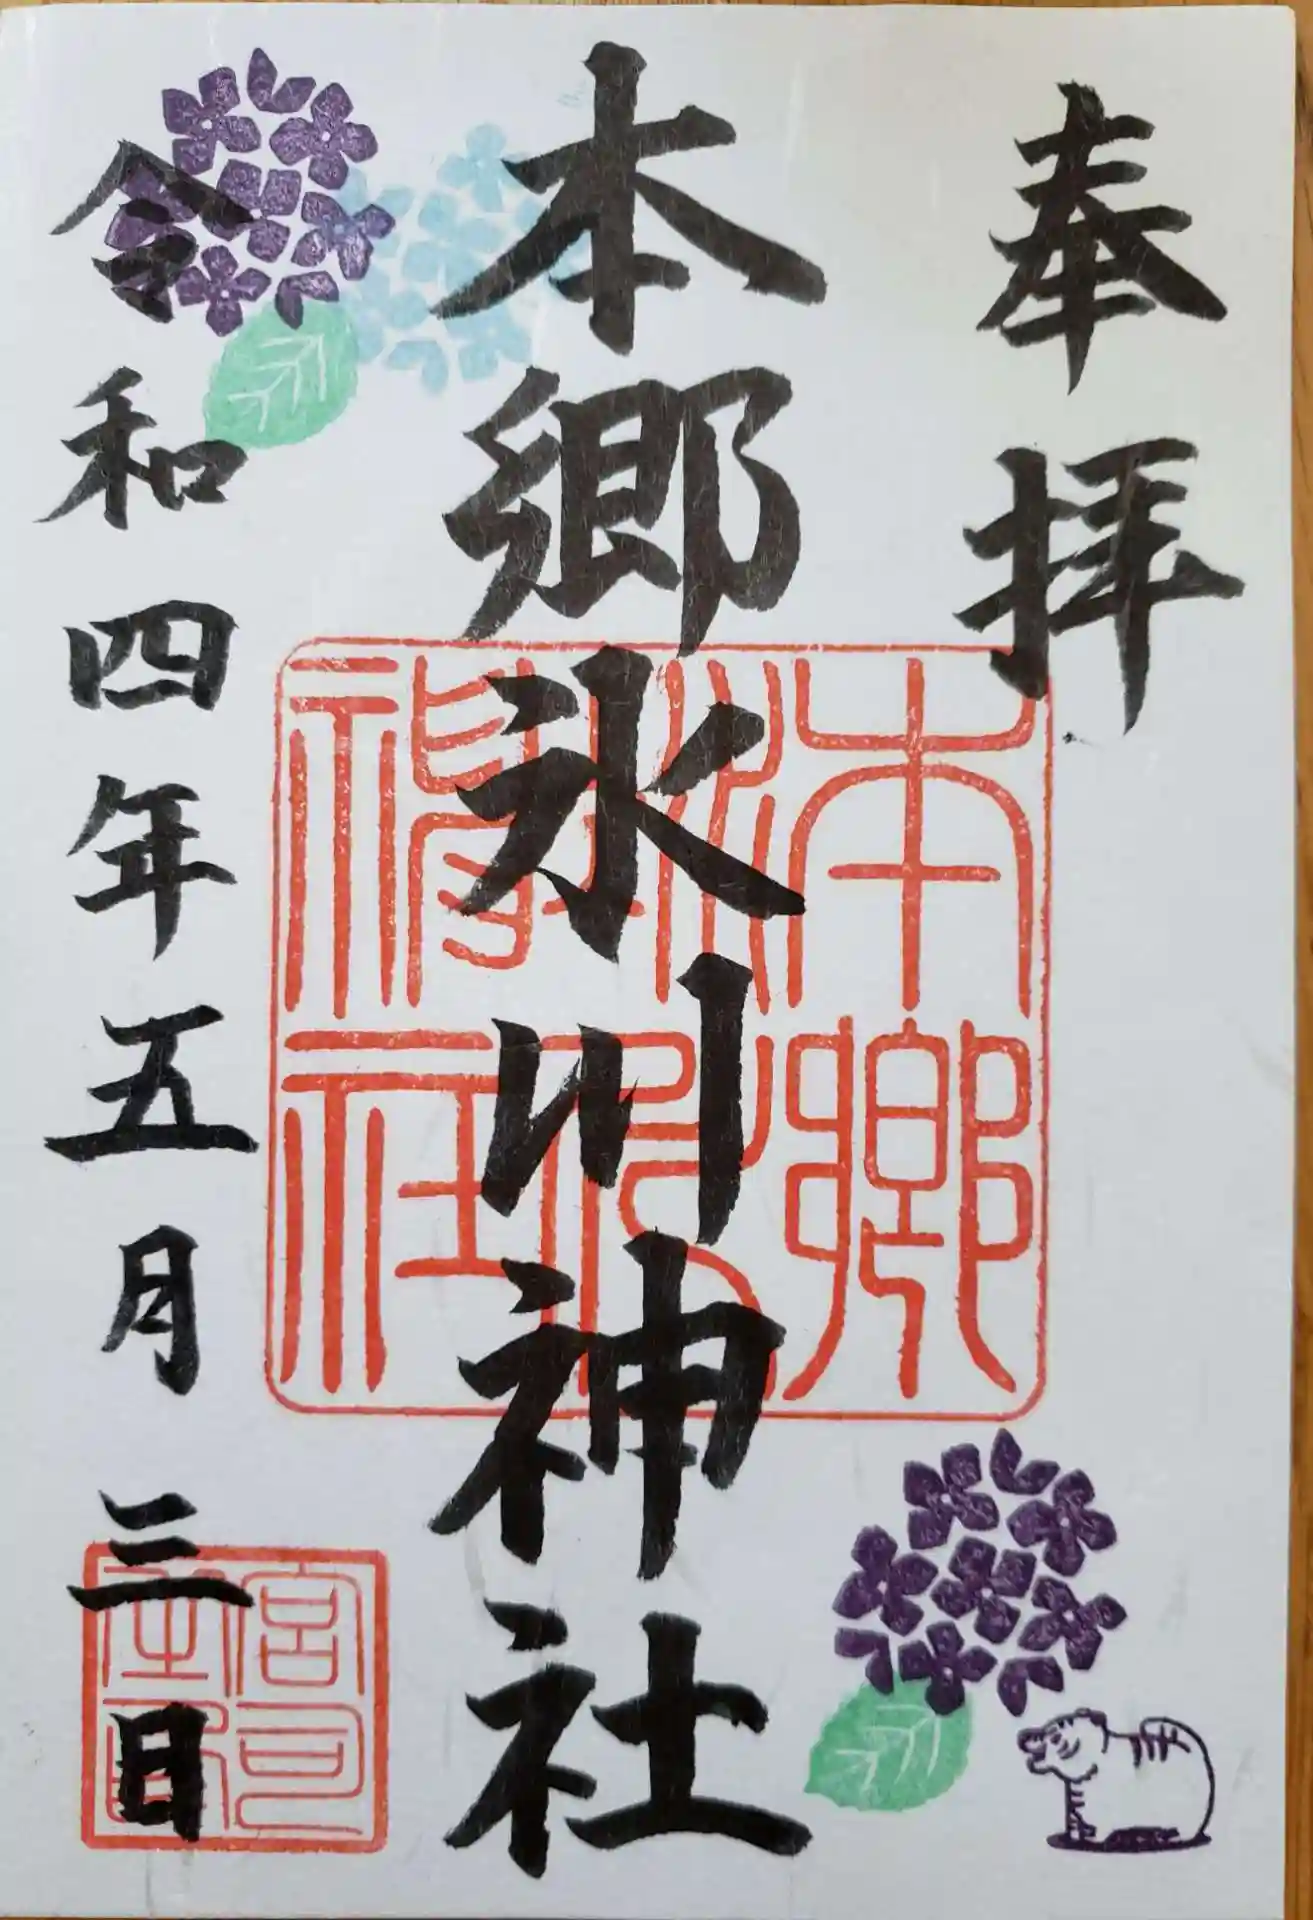 奉拝
本郷氷川神社
令和四年五月三日
本郷
氷川
神社
宮司
之印